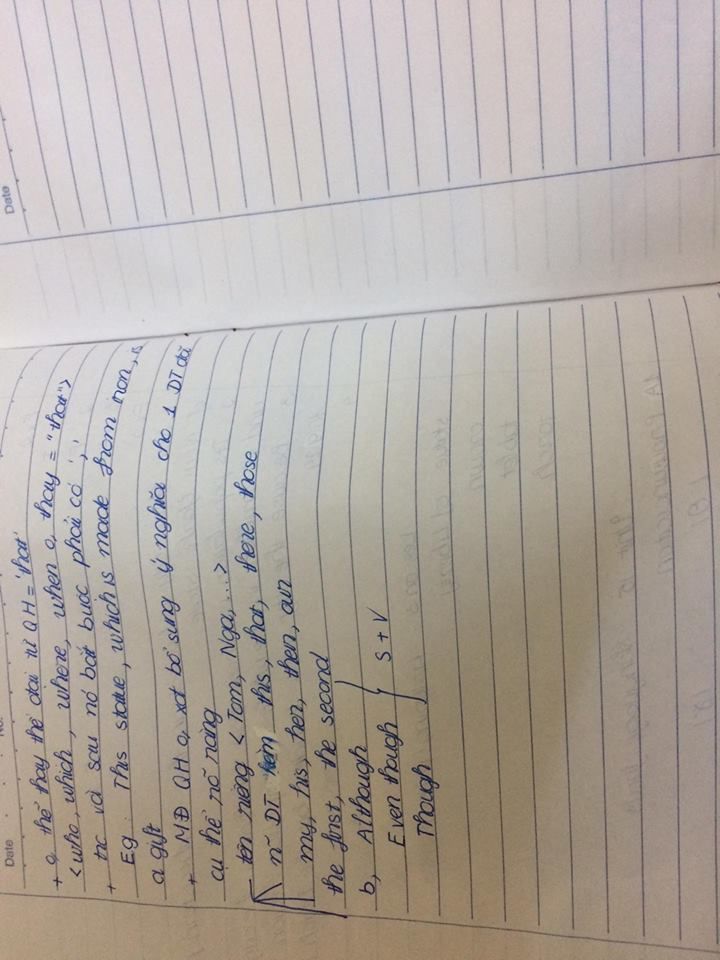 Date
No.
+ o thể thay thế đại từ QH = 'that'
< who, which, where, when o thay = "that">
+ trc và sau nó bắt buộc phải có ', ,
Eg : This statue, which is made from iron, is
a gift
+ MĐ QH o xđ bổ sung ý nghĩa cho 1 DT đã
cụ thể rõ ràng
tên riêng < Tom, Nga, ...>
n~ DT kèm this, that, there, those
my, his, her, their, our
the first, the second
b, Although
Even though } S + V
Though
Date